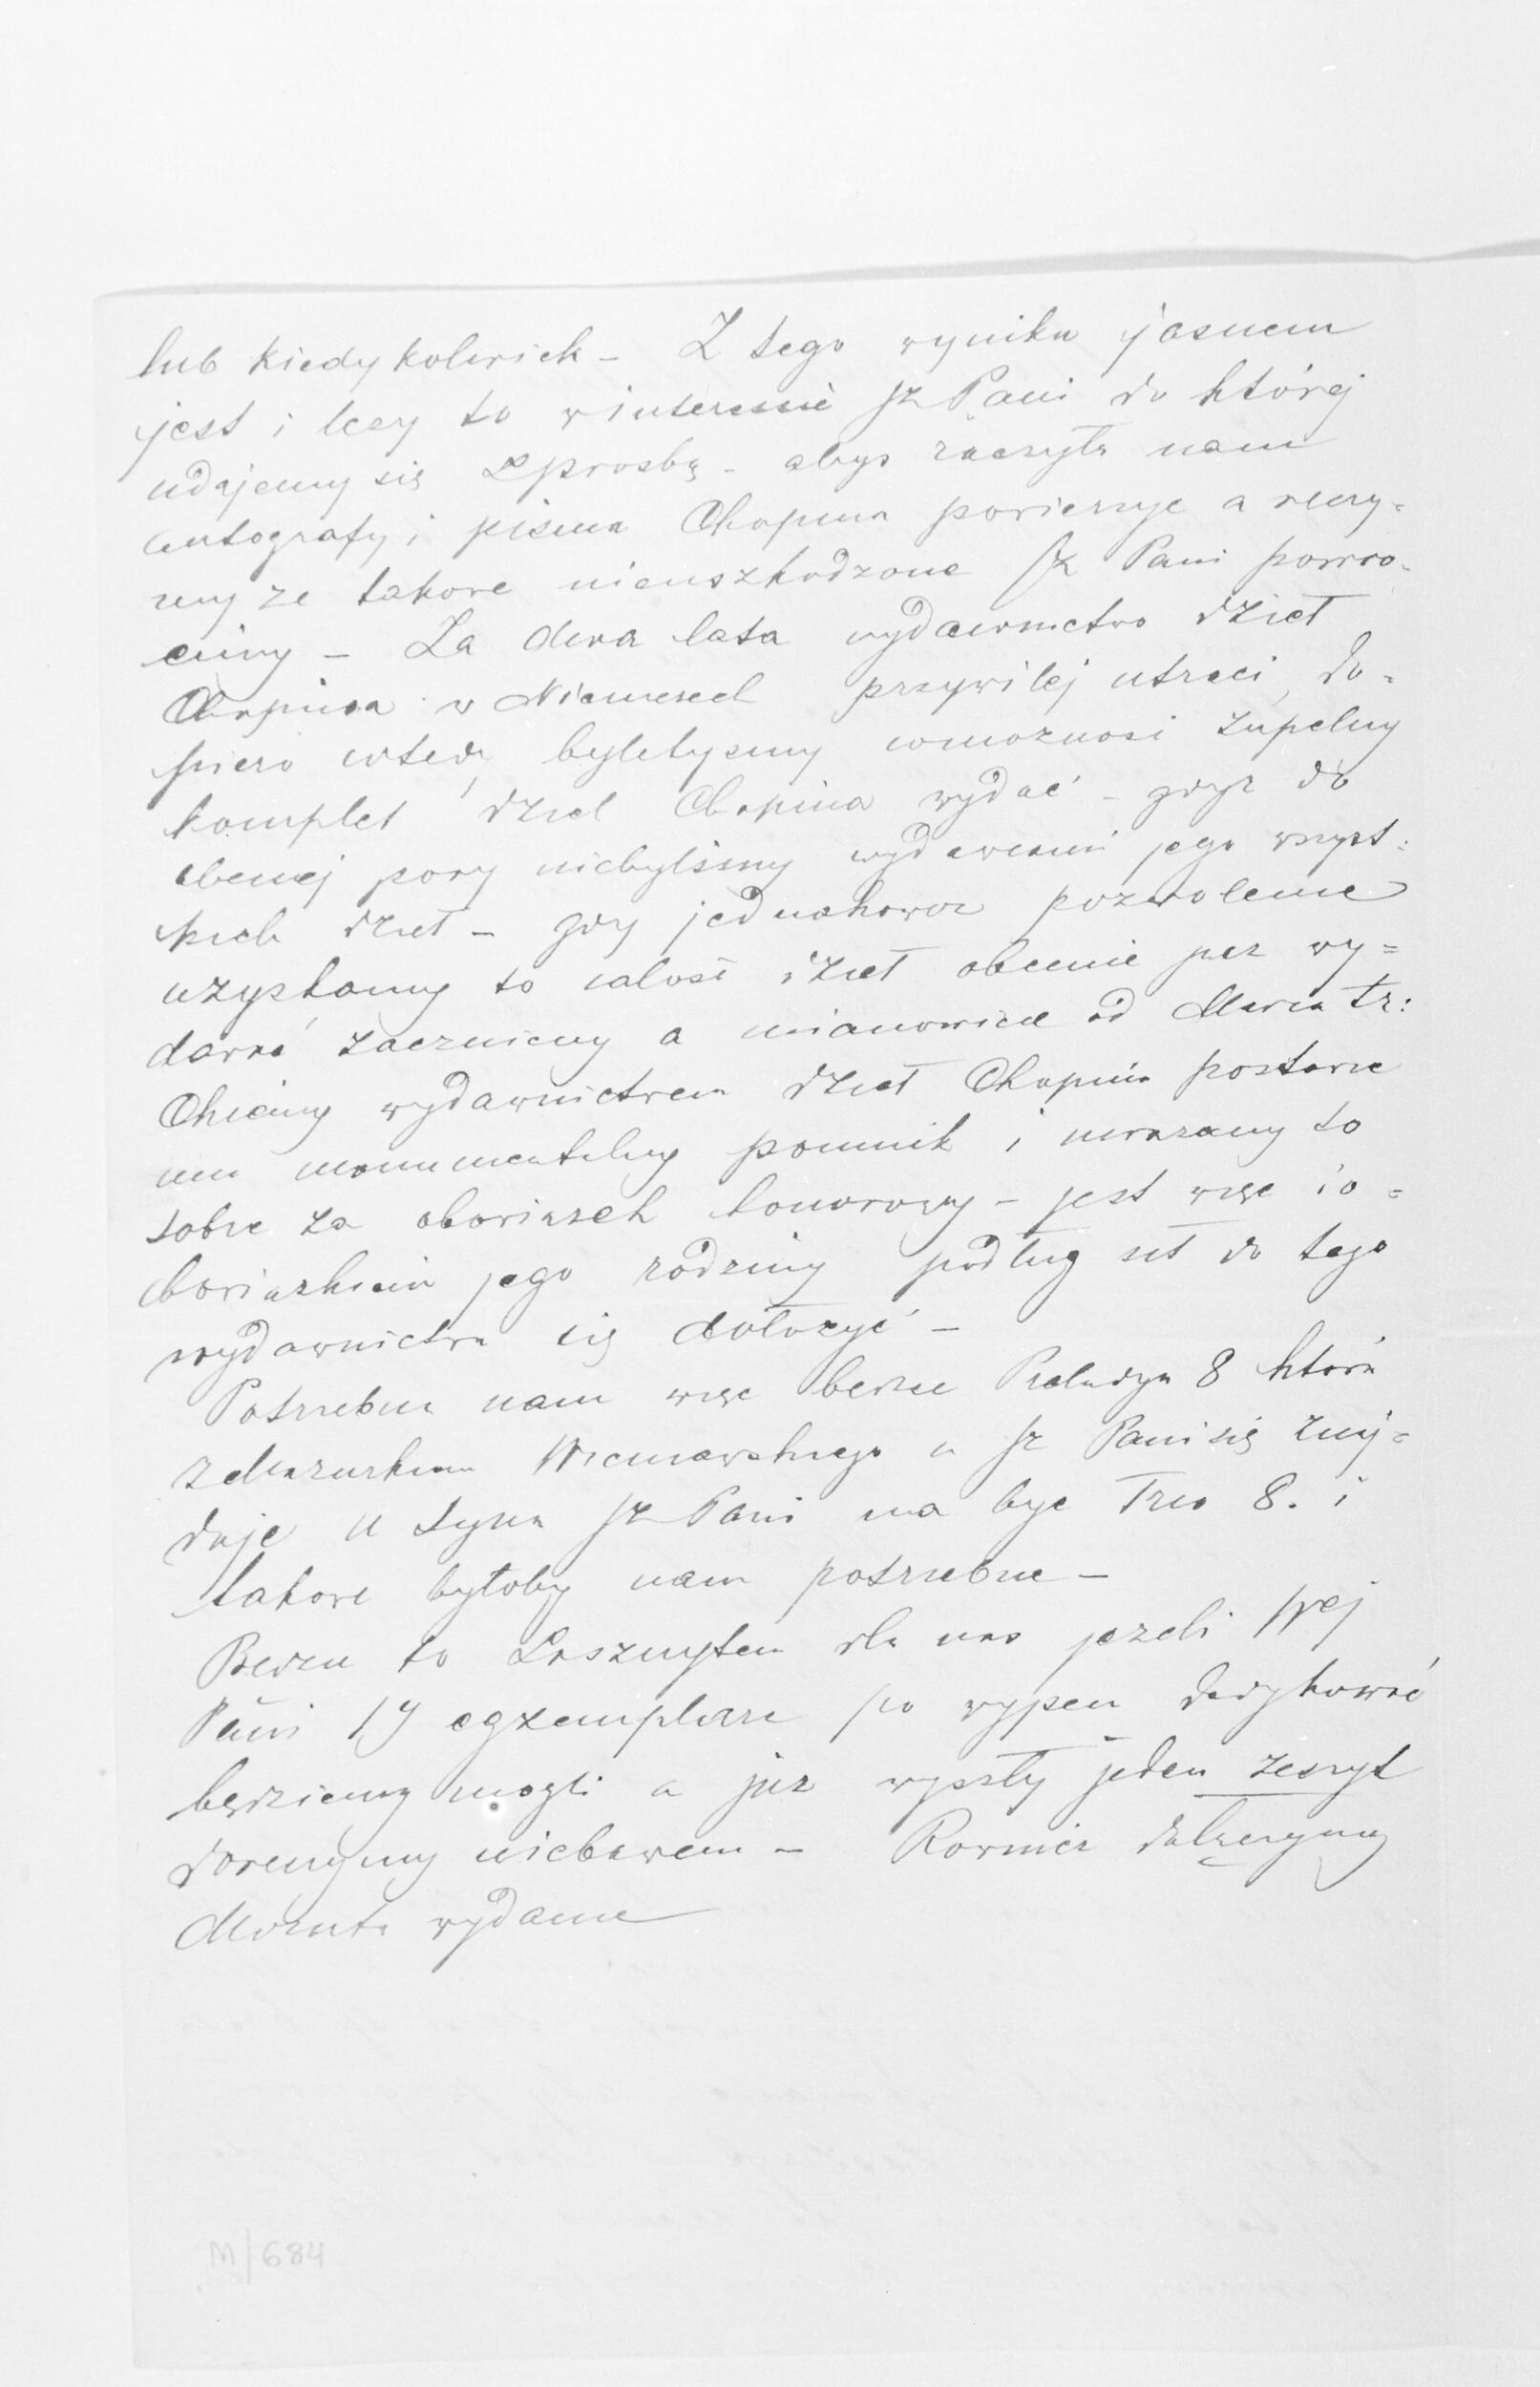 lub kiedykolwiek – Z tego wyniku jasnem
jest i leży to w interessie Sz Pani do której
udajemy się z prosbą – abyś raczyła nam
autografy i pisma Chopina powierzyć a ręczy-
my że takowe nieuszkodzone Sz Pani powró-
cimy – Za dwa lata wydawnictwo dzieł
Chopina w Niemczech przywilej utraci, do-
piero wtedy bylebyśmy w możnosi zupełny
komplet dzieł Chopina wydać – gdyż do
obecnej pory niebyliśmy wydawcami jego wszyst-
kich dzieł – gdy jednakowoż pozwolenie
uzyskamy to całość dzieł obecnie już wy=
dawać zaczniemy a mianowicie od Marca tr:
Chcemy wydawnictwem dzieł Chopina postawić
mu monumentalny pomnik i uważamy to
sobie za obowiązek honorowy – jest więc i o=
bowiązkiem jego rodziny podług sił do tego
wydawnictwa się dołożyć –
Potrzebna nam więc będzie Preludya 8 która
z Mazurkiem u Sz Pani się znaj=
duje u syna Sz Pani ma być Trio 8. i
takowe byłoby nam potrzebne –
Będzie to zaszczytem dla nas jeżeli Wej
Pani 1y egzemplarz po dedykować
będziemy mogli a już wyszły jeden zeszyt
doręczymy niebawem – Również dołączymy
Mozarta wydanie
M/684